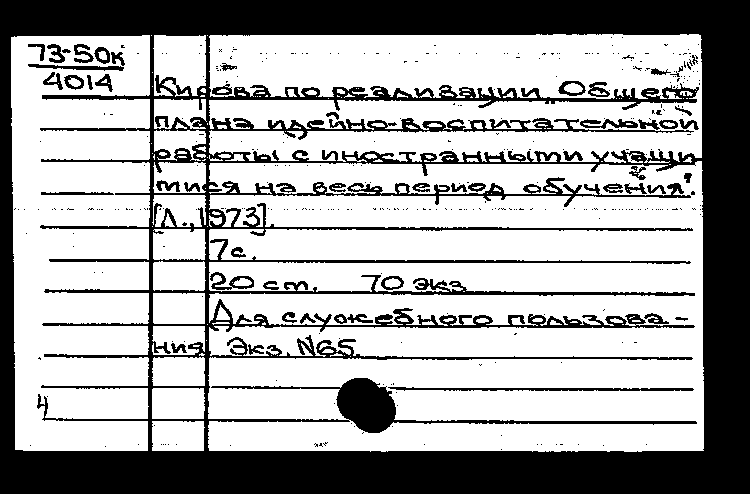 73-50к
4014
Кирова по реализации „Общего
плана идейно-воспитательной
работы с иностранными учащи
мися на весь период обучения".
[Л., 1973].
7с.
20 ст. 70 экз
Для служебного пользова-
ния. Экз. N65.
4